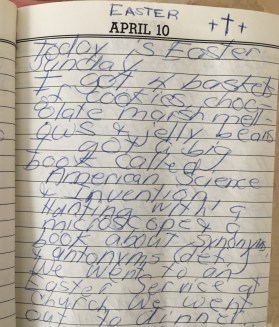 EASTER
APRIL 10
today 's Easter
Sunday
I got 4 baskets
of cookies, choc-
olate marshmell-
ows & jelly beans
I got a big
book called
American Science
& Invention
microscopes &
book about synonyms
& antonyms
We went to an
Easter Service at
church We went
out to dinner